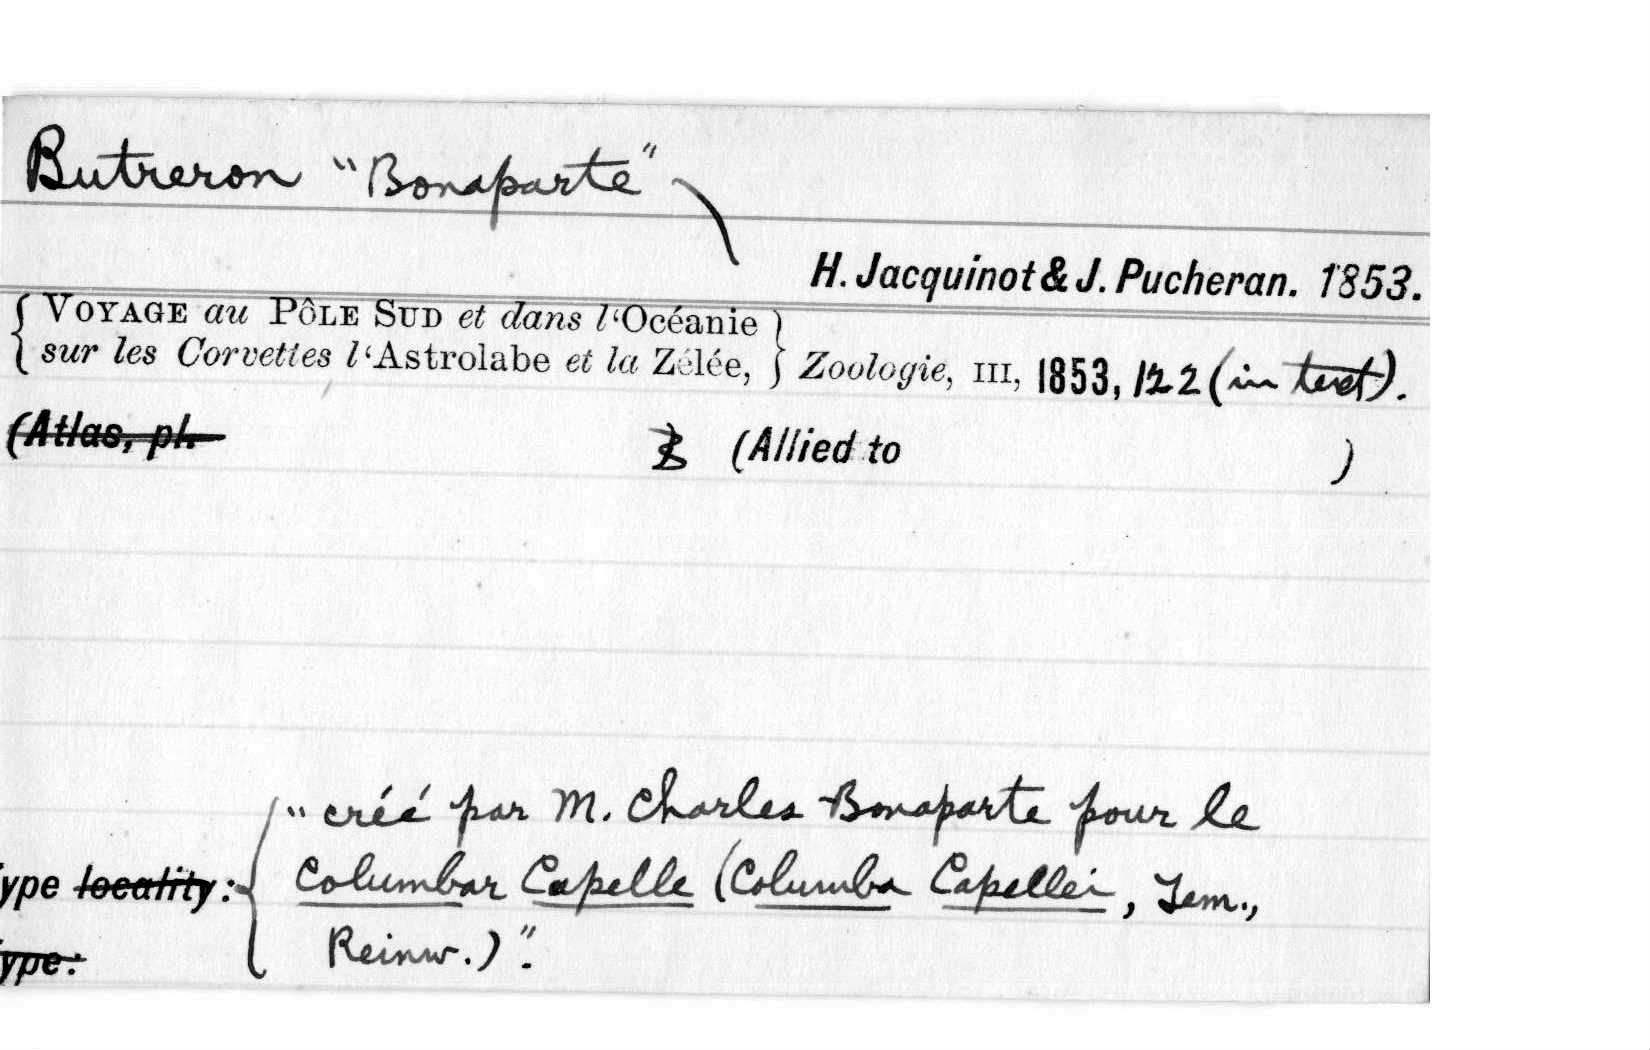 Butreron "Bonaparte"
H. Jacquinot & J. Pucheran. 1853.
VOYAGE au PôLE SUD et dans l‘Océanie
sur les Corvettes l‘Astrolabe et la Zélée, Zoologie, III, 1853, 122 (in text).
(Atlas, pl. (Allied to )
"créé par M. Charles Bonaparte pour le
ype locality: Columbar Capelle (Columba Capellei, Tem.,
ype: Reinw.)".